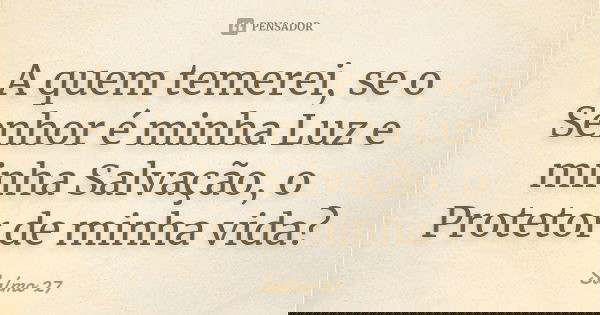 PENSADOR
A quem temerei, se o
Senhor é minha Luz e
minha Salvação, o
Protetor de minha vida?
Salmo 27